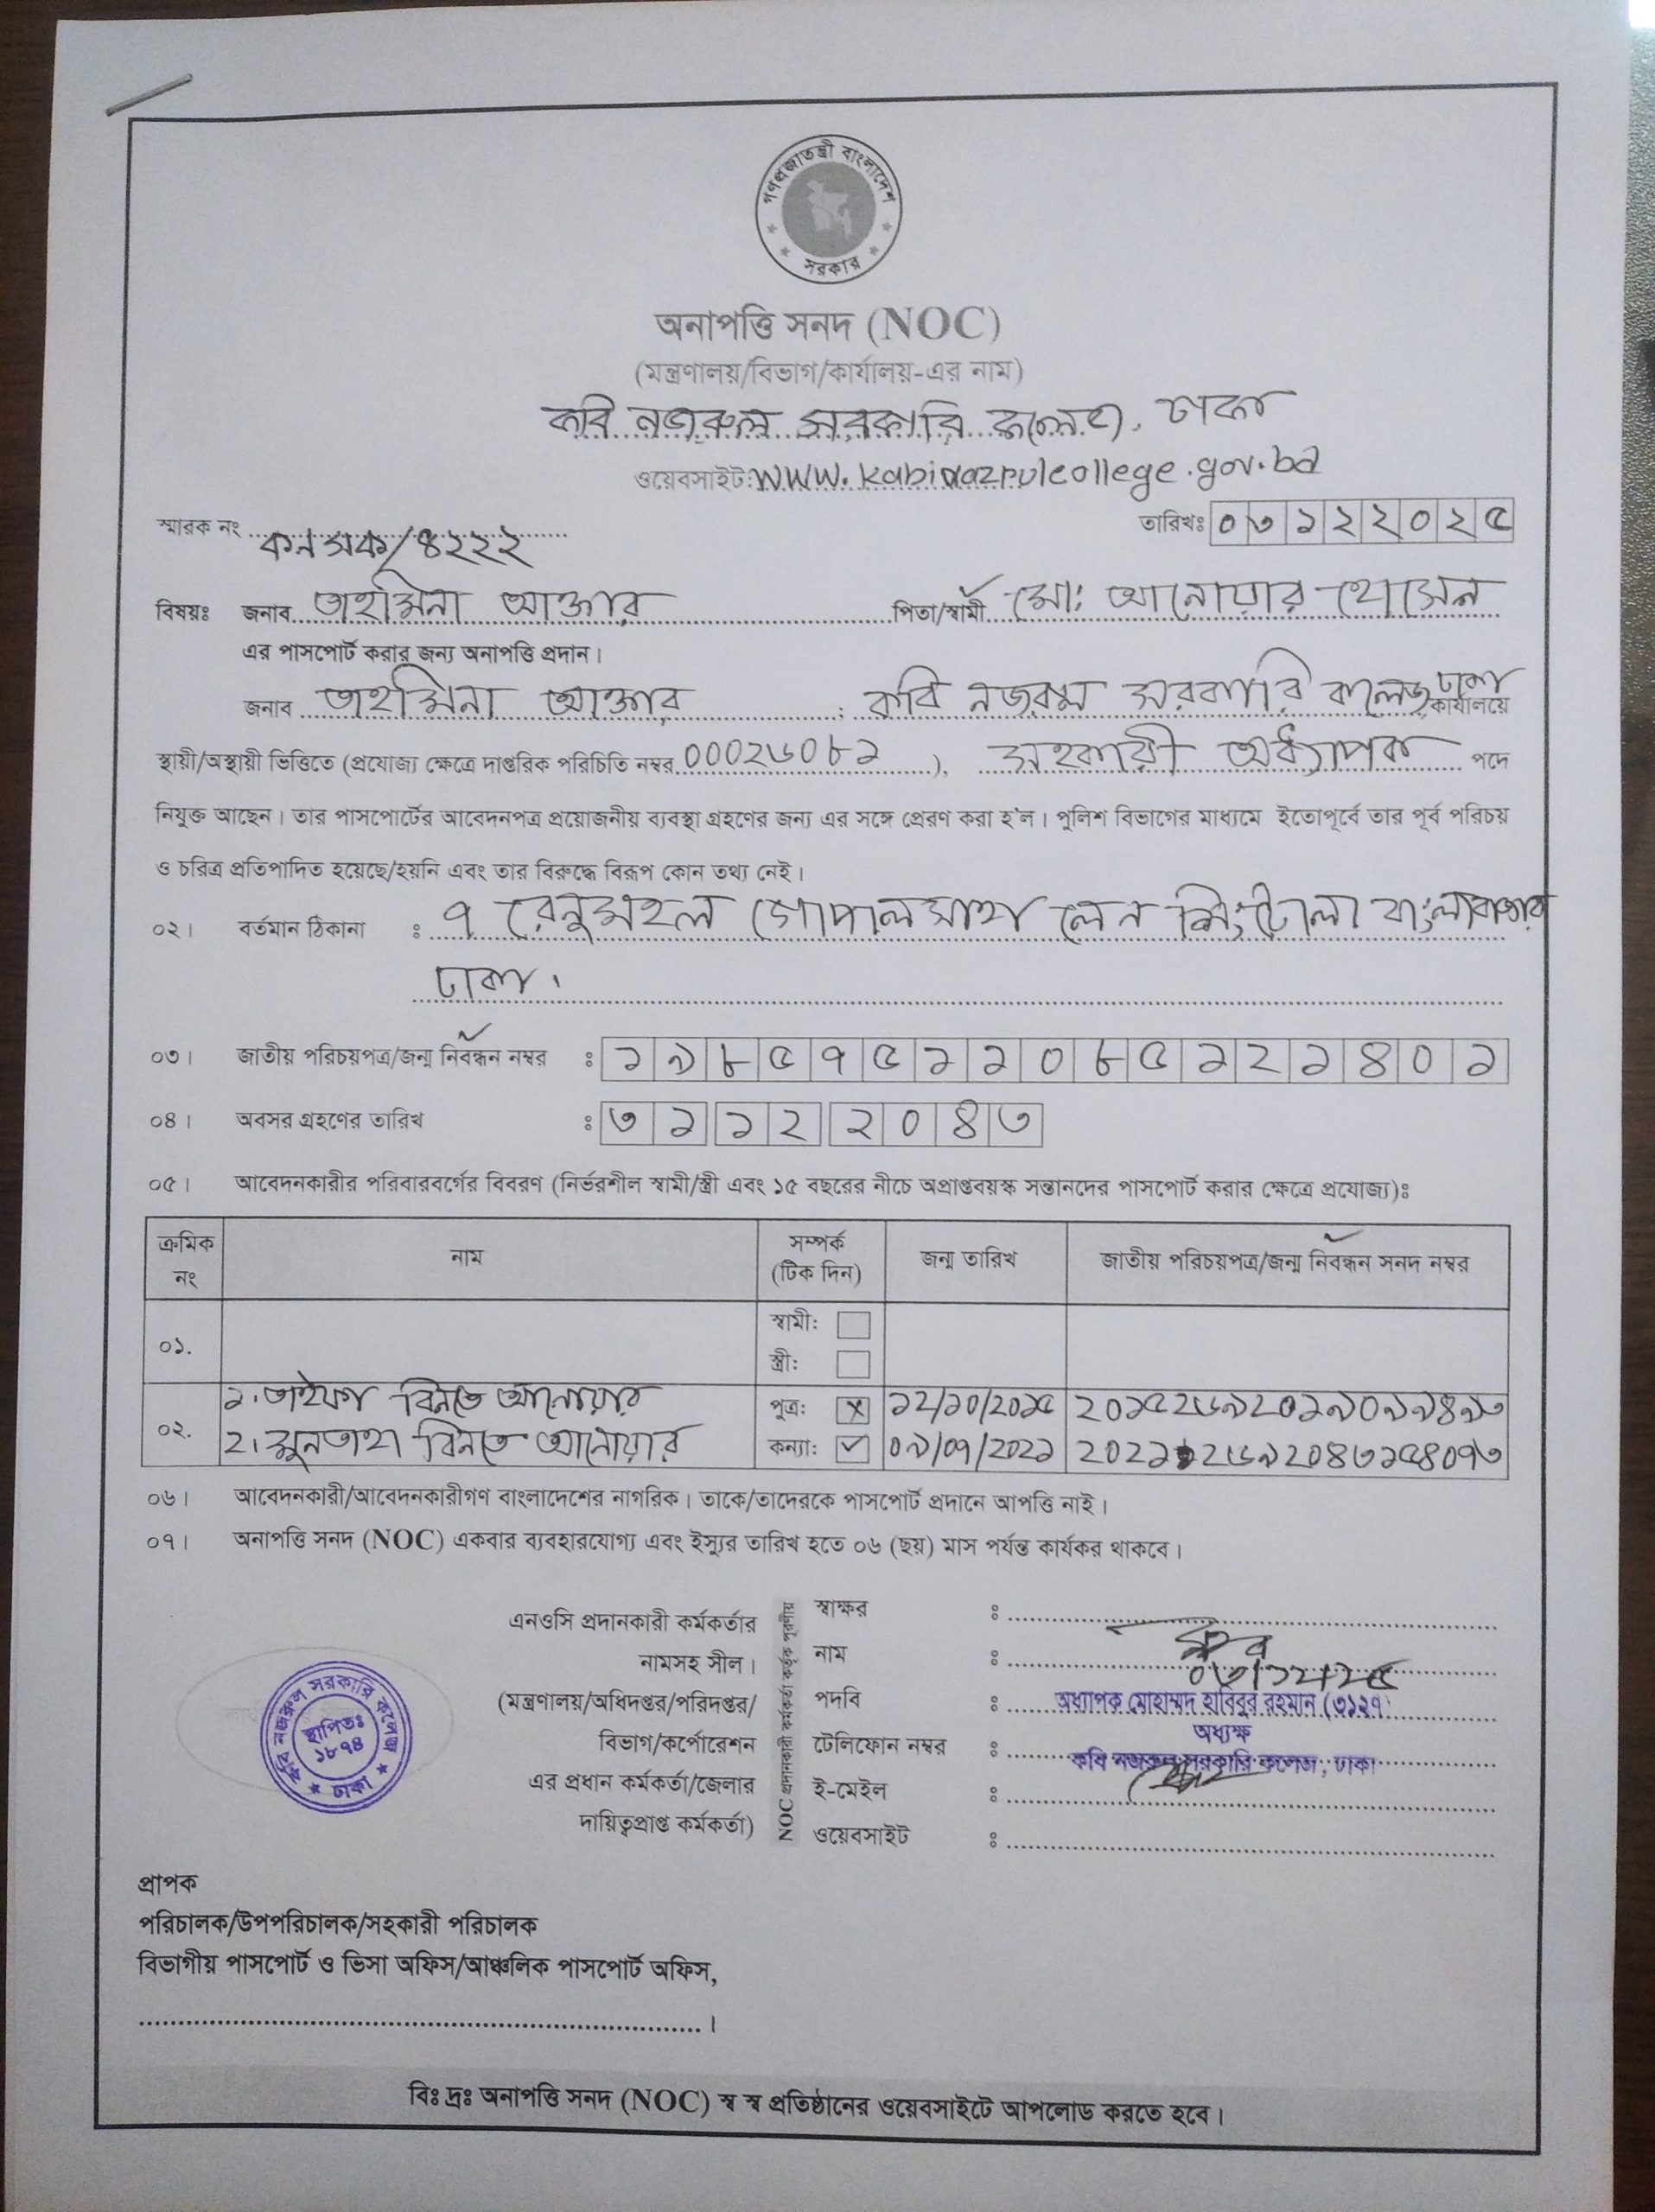 গণপ্রজাতন্ত্রী বাংলাদেশ
সরকার
অনাপত্তি সনদ (NOC)
(মন্ত্রণালয়/বিভাগ/কার্যালয়-এর নাম)
কবি নজরুল সরকারি কলেজ, ঢাকা
ওয়েবসাইট: www.kabinazrulcollege.gov.bd
স্মারক নং কনসক/৪২২২ তারিখঃ ০৩১২২০২৫
বিষয়ঃ জনাব তাহমিনা আক্তার পিতা/স্বামী মো: আনোয়ার হোসেন
এর পাসপোর্ট করার জন্য অনাপত্তি প্রদান।
জনাব তাহমিনা আক্তার ; কবি নজরুল সরকারি কলেজ, ঢাকা কার্যালয়ে
স্থায়ী/অস্থায়ী ভিত্তিতে (প্রযোজ্য ক্ষেত্রে দাপ্তরিক পরিচিতি নম্বর ০০০২৬০৮১ ), সহকারী অধ্যাপক পদে
নিযুক্ত আছেন। তার পাসপোর্টের আবেদনপত্র প্রয়োজনীয় ব্যবস্থা গ্রহণের জন্য এর সঙ্গে প্রেরণ করা হ'ল। পুলিশ বিভাগের মাধ্যমে ইতোপূর্বে তার পূর্ব পরিচয়
ও চরিত্র প্রতিপাদিত হয়েছে/হয়নি এবং তার বিরুদ্ধে বিরূপ কোন তথ্য নেই।
০২। বর্তমান ঠিকানা : ৭ রেনুমহল গোপালসাহা লেন শিংটোলা বাংলাবাজার
ঢাকা।
০৩। জাতীয় পরিচয়পত্র/জন্ম নিবন্ধন নম্বর : ১৯৮৫৭৫১১০৮৫১২১৪০১
০৪। অবসর গ্রহণের তারিখ : ৩১১২২০৪৩
০৫। আবেদনকারীর পরিবারবর্গের বিবরণ (নির্ভরশীল স্বামী/স্ত্রী এবং ১৫ বছরের নীচে অপ্রাপ্তবয়স্ক সন্তানদের পাসপোর্ট করার ক্ষেত্রে প্রযোজ্য)ঃ
ক্রমিক নং নাম সম্পর্ক (টিক দিন) জন্ম তারিখ জাতীয় পরিচয়পত্র/জন্ম নিবন্ধন সনদ নম্বর
০১. স্বামী:
স্ত্রী:
০২. ১. তাইফা বিনতে আনোয়ার পুত্র: x ১২/১০/২০১৫ ২০১৫২৬৯২০১৯০৯৯৪৯৩
২। মুনতাহা বিনতে আনোয়ার কন্যা: ✓ ০৯/০৭/২০২১ ২০২১২৬৯২০৪৩১৫৪০৭৩
০৬। আবেদনকারী/আবেদনকারীগণ বাংলাদেশের নাগরিক। তাকে/তাদেরকে পাসপোর্ট প্রদানে আপত্তি নাই।
০৭। অনাপত্তি সনদ (NOC) একবার ব্যবহারযোগ্য এবং ইস্যুর তারিখ হতে ০৬ (ছয়) মাস পর্যন্ত কার্যকর থাকবে।
এনওসি প্রদানকারী কর্মকর্তার
নামসহ সীল।
(মন্ত্রণালয়/অধিদপ্তর/পরিদপ্তর/
বিভাগ/কর্পোরেশন
এর প্রধান কর্মকর্তা/জেলার
দায়িত্বপ্রাপ্ত কর্মকর্তা)
NOC প্রদানকারী কর্মকর্তা কর্তৃক পূরণীয়
স্বাক্ষর :
নাম : ০৩/১২/২৫
পদবি : অধ্যাপক মোহাম্মদ হাবিবুর রহমান (৩১২৭)
অধ্যক্ষ
টেলিফোন নম্বর : কবি নজরুল সরকারি কলেজ, ঢাকা
ই-মেইল :
ওয়েবসাইট :
কবি নজরুল সরকারি কলেজ
স্থাপিতঃ
১৮৭৪
ঢাকা
প্রাপক
পরিচালক/উপপরিচালক/সহকারী পরিচালক
বিভাগীয় পাসপোর্ট ও ভিসা অফিস/আঞ্চলিক পাসপোর্ট অফিস,
।
বিঃ দ্রঃ অনাপত্তি সনদ (NOC) স্ব স্ব প্রতিষ্ঠানের ওয়েবসাইটে আপলোড করতে হবে।